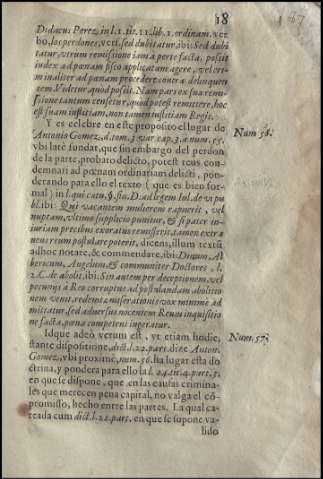 18
Didacus Perez, in l. 1. tit. 11. lib. 1. ordinam. ver
bo, los perdones, vers. sed dubitatur, ibi: Sed dubi
tatur, vtrum remissione iam à parte facta, possit
iudex ad pœnam fisco applicatam agere, vel cri-
minaliter ad pœnam procedere contra delinquen
tem. Videtur, quod possit. Nam pars ex sua remis
sione tantum censetur, quod potest remittere, hoc
est suam iustitiam, non tamen iustitiam Regis.
Y es celebre en este proposito el lugar de
Antonio Gomez, d. tom. 3. var. cap. 3. a num. 55.
vbi latè fundat, que sin embargo del perdon
de la parte, probato delicto, potest reus con-
demnari ad pœnam ordinariam delicti, pon-
derando para ello el texto (que es bien for-
mal) in l. qui cœtu, §. fin. D. ad legem Iul. de vi pu
bl. ibi: Qui vacantem mulierem rapuerit, vel
nuptam, vltimo supplicio punitur, & si pater in-
iuriam precibus exoratus remisserit, tamen extra
neus reum postulare poterit, dicens, illum textũ
ad hoc notare, & commendare, ibi: Dinum, Al
bericum, Angelum, & communiter Doctores, l.
2. C. de abolit. ibi: Sin autem per deceptionem, vel
pecunijs à Reo corruptus ad postulandam abolitio
nem venit, redemtæ miserationis vox minimè ad
mittatur, sed aduersus nocentem Reum inquisitio
ne facta, pœna competens irrogatur.
Idque adeò verum est, vt etiam hodie,
stante dispositione, dict. l. 22. part. dize Anton.
Gomez, vbi proximè, num. 56. ha lugar esta do
ctrina, y pondera para ello la l. 24. tit. 4. part. 3.
en que se dispone, que en las causas crimina-
les que merecen pena capital, no valga el cõ-
promisso, hecho entre las partes. La qual ca-
reada cum dict. l. 22. part. en que se supone va-
lido
Num. 56.
Num. 57.